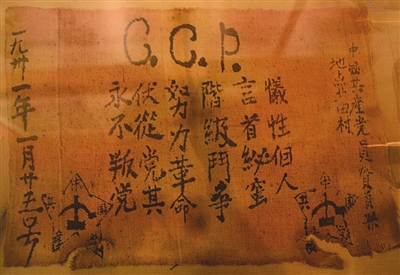 C.C.P.
中國共產党員
地点北田村
犧性個人
言首秘蜜
階級鬥爭
努力革命
伏從党其
永不叛党
一九卅一年一月廿五号